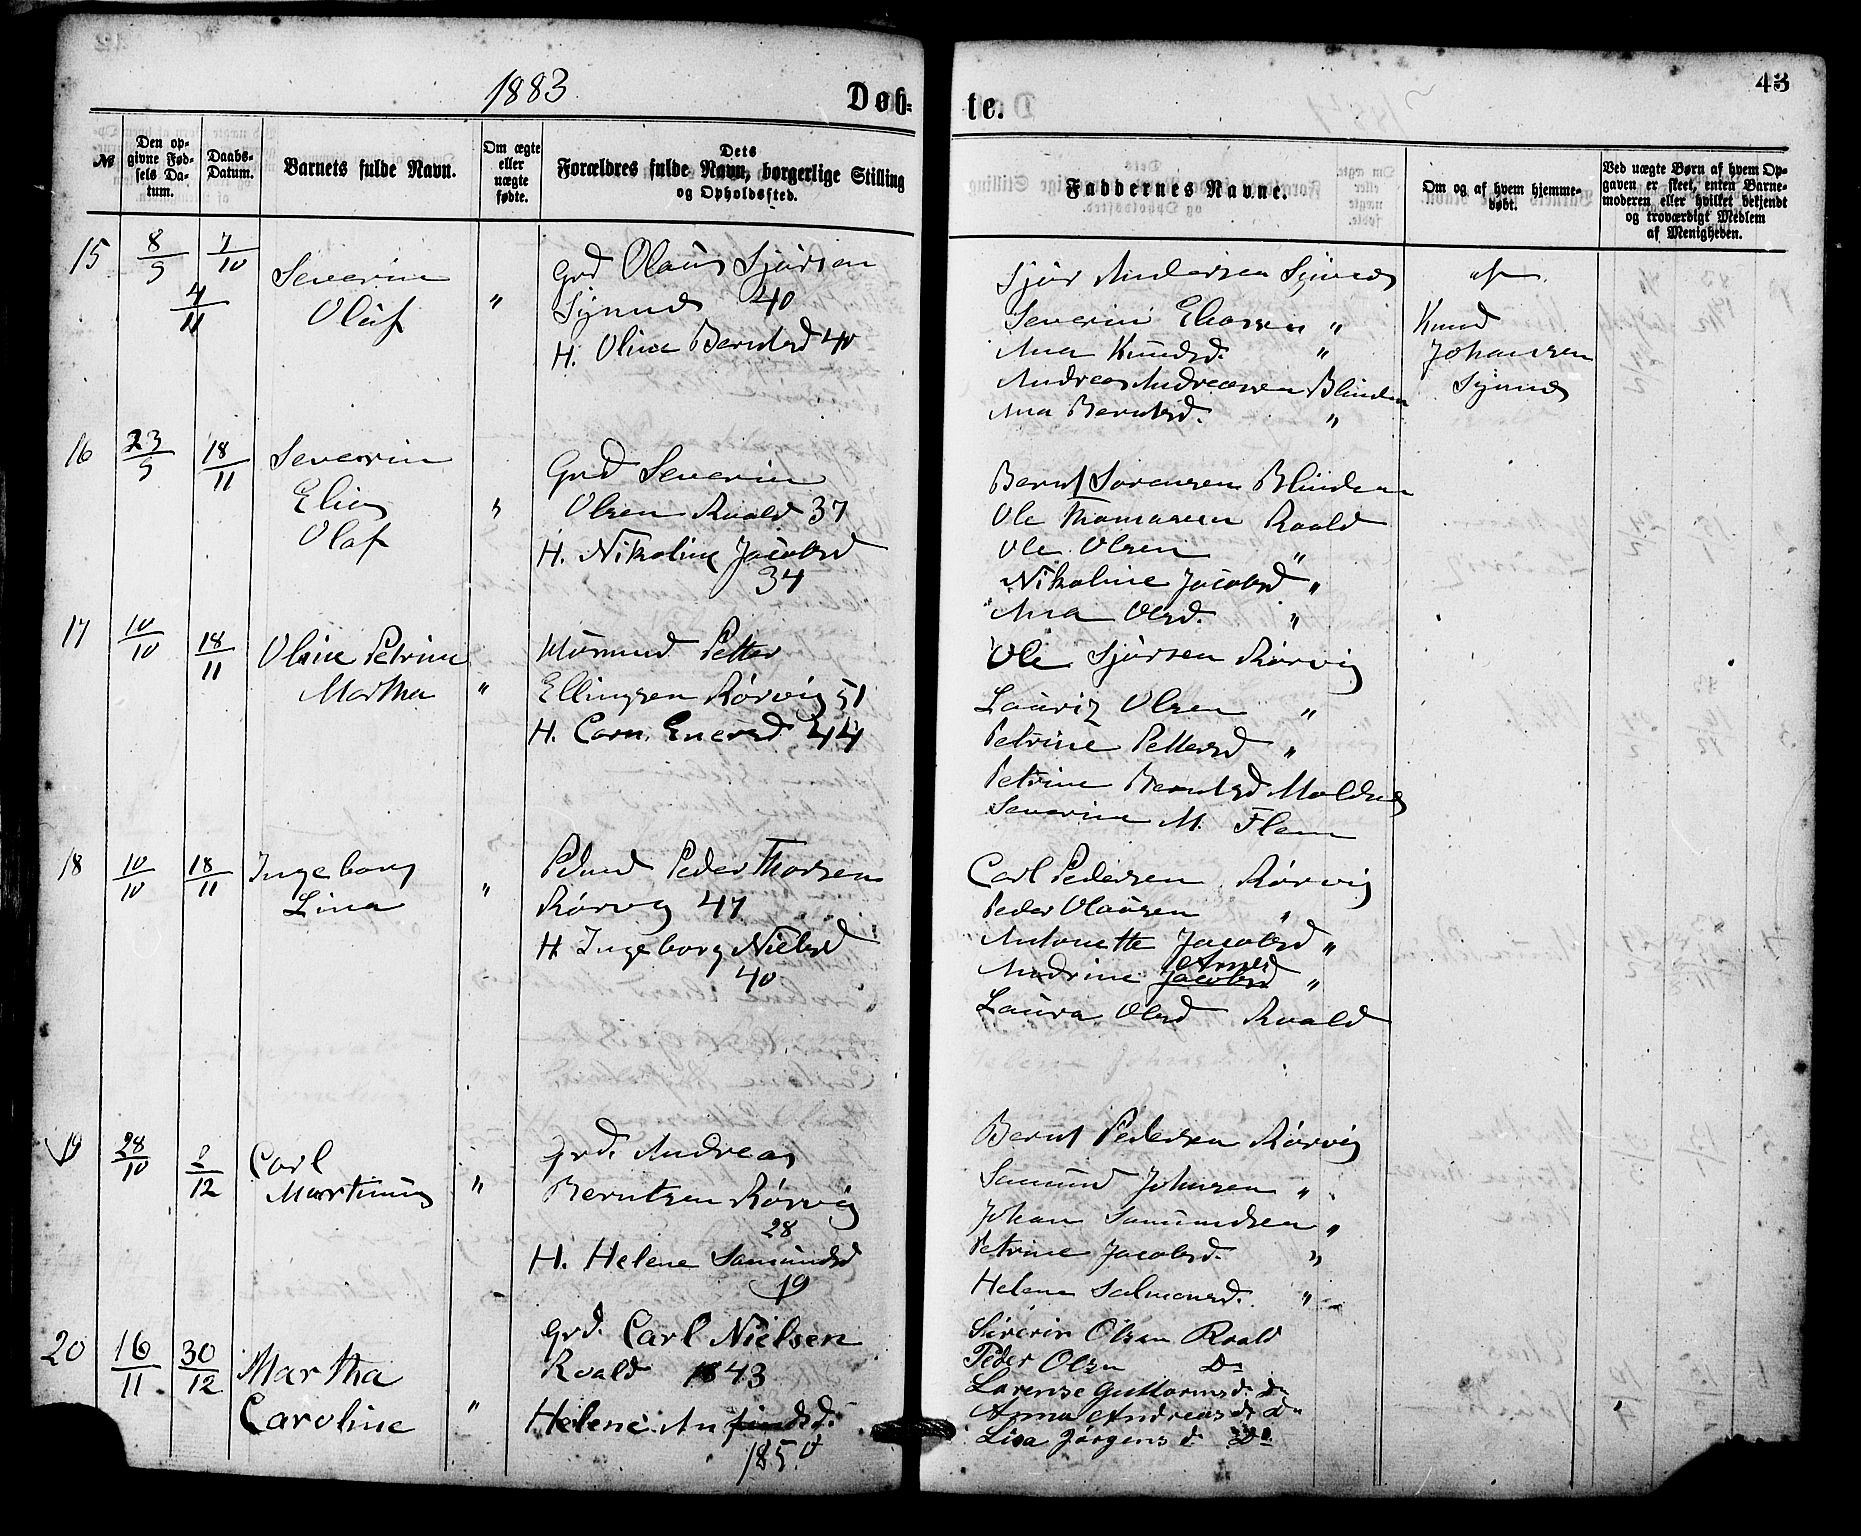 1883
Døb-
te.
43
№
Den op-
givne Fød-
sels Da-
tum.
Daabs-
Datum.
Barnets fulde Navn.
Om ægte
eller
uægte
fødte.
Dets
Forældres fulde Navn, borgerlige Stilling
og Opholdssted.
Faddernes Navne.
Om og af hvem hjemme-
døbt.
Ved uægte Børn af hvem Op-
gaven er skeet, enten Barne-
moderen eller hvilket bekjendt
og troværdigt Medlem
af Menigheden.
15
8/9
7/10
4/11
Severin
Olaf
"
Grd Olaus Sjursen
Synnes 40
H. Oline Berntsd 40
Sjur Andersen Synnes
Severin Eliassen "
Ana Knudsd. "
Andreas Andreassen Blinden
Ana Berntsd. "
af
Knud
Johansen
Synnes
16
23/9
18/11
Severin
Elias
Olaf
"
Grd Severin
Olsen Roald 37
H. Nikoline Jacobsd
34
Bernt Sorensen Blindem
Ole Thomassen Roald
Ole Olsen "
Nikoline Jacobsd "
Ana Olsd. "
17
10/10
18/11
Oline Petrine
Martha
"
Huusmd Petter
Ellingsen Rørvig 51
H. Corn. Enersd 44
Ole Sjursen Rørvig
Lauriz Olsen "
Petrine Pettersd "
Petrine Berntsd Moldnes
Severine M. Flem
18
10/10
18/11
Ingeborg
Lina
"
Pdmd Peder Thorsen
Rørvg 47
H. Ingeborg Nielsd
40
Carl Pedersen Rørvig
Peder Olausen "
Antonette Jacobsd "
Andrine Jacobsd "
Laura Olsd Roald
19
28/10
2/12
Carl
Martinus
"
Grd. Andreas
Berntsen Rørvig
28
H. Helene Samundsd
19
Bernt Pedersen Rørvig
Samund Johnsen "
Johan Samundsen "
Petrine Jacobsd. "
Helene Salmonsd. "
20
16/11
30/12
Martha
Caroline
"
Grd. Carl Nielsen
Roald 1843
Helene Anfindsd.
1850
Severin Olsen Roald
Peder Olsn Do
Lorense Guttormsd. Do
Anna Andreasd. Do
Lisa Jørgensd Do